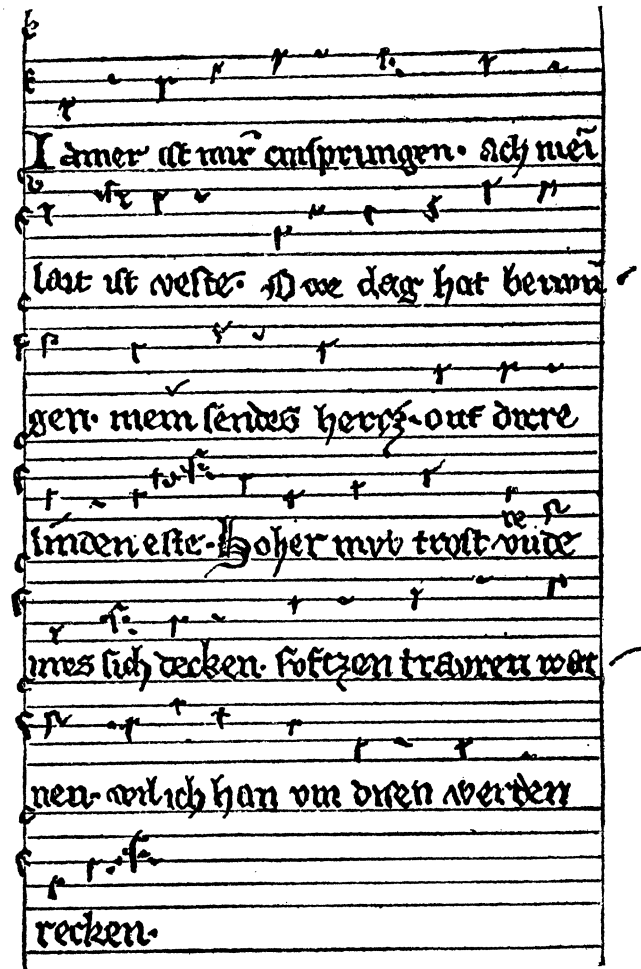 Iamer ist mir̄ entsprungen. Ach mei̅
lait ist veste. O we dag hat betwū
gen. mein sendes hercz. ouf dirre
linden este. Hoher mvt trost vnde
mes sich decken. softzen travren wat
nen. wil ich han vm disen werden
recken.